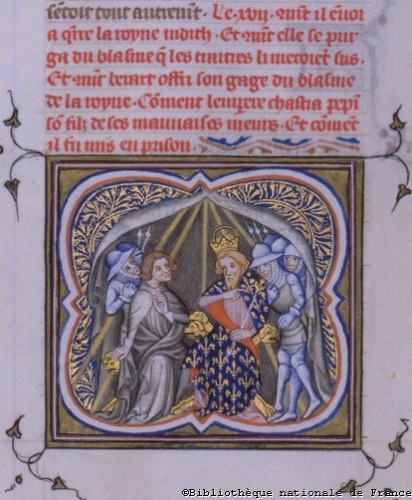 seroit tout autrement. Le .xvii. cōment il enuoi
a q̄rre la royne iudith. Et cōment elle se pur
ga du blasme q̄ les traitres li metoient sus.
Et cōment berart offri son gage du blasme
de la royne. Cōment lempere chastia pepī
sō filz de ses mauuaises meurs. Et cōment
il fu mis en prison.
©Bibliothèque nationale de France